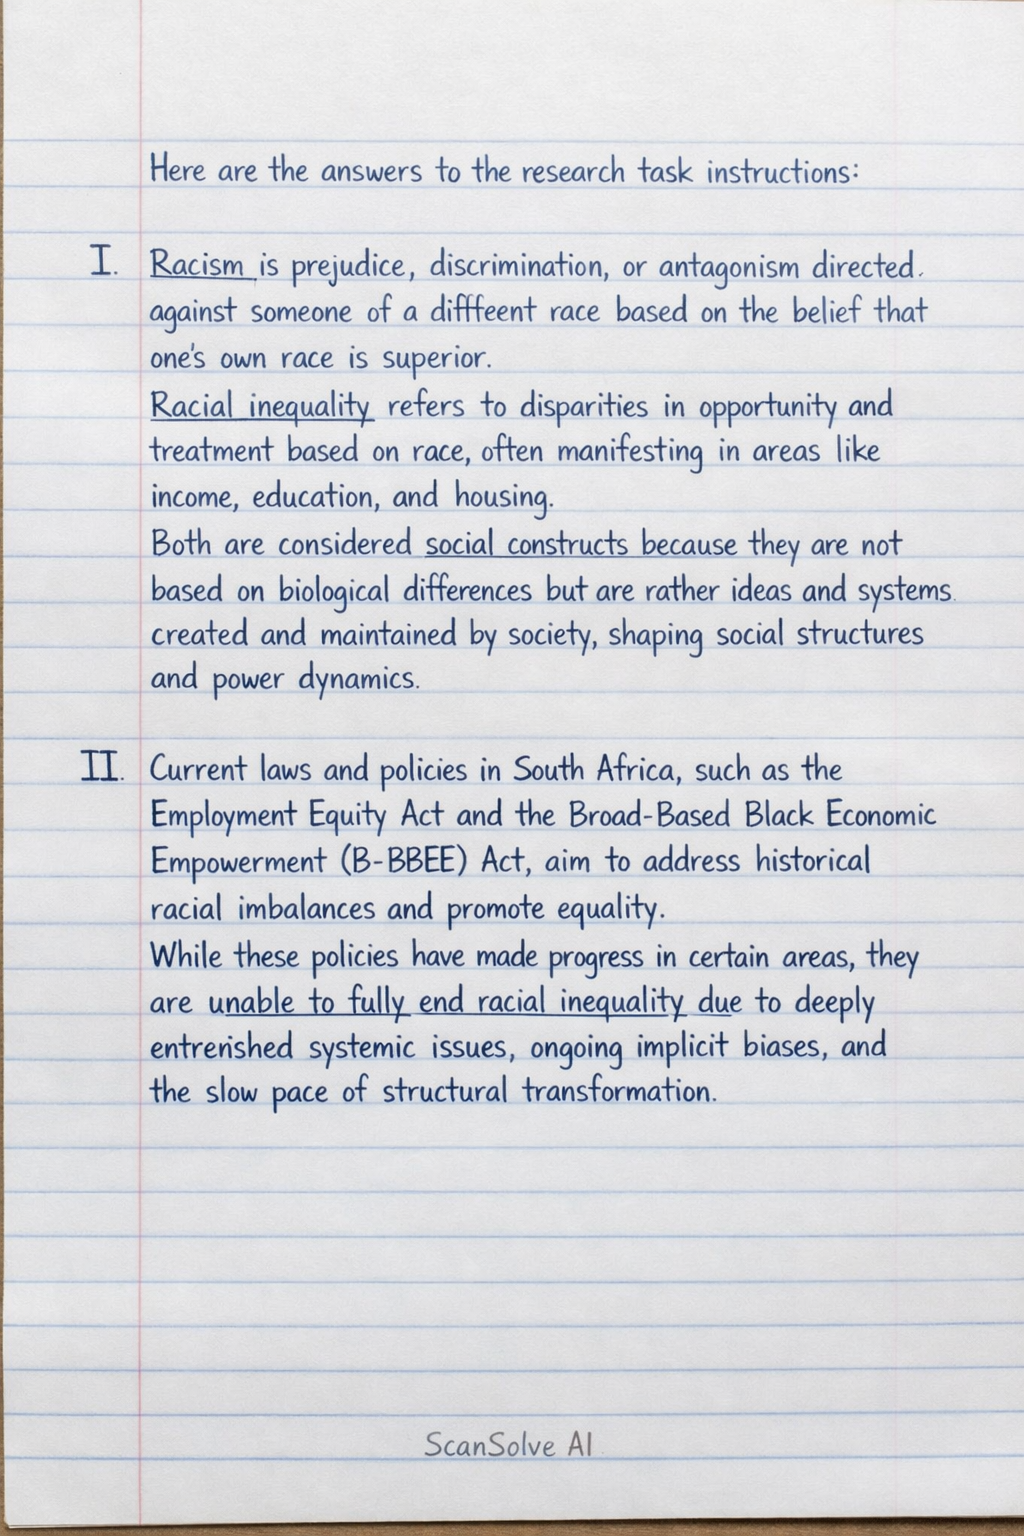 Here are the answers to the research task instructions:
I. Racism is prejudice, discrimination, or antagonism directed.
against someone of a difffeent race based on the belief that
one's own race is superior.
Racial inequality refers to disparities in opportunity and
treatment based on race, often manifesting in areas like
income, education, and housing.
Both are considered social constructs because they are not
based on biological differences but are rather ideas and systems.
created and maintained by society, shaping social structures
and power dynamics.
II. Current laws and policies in South Africa, such as the
Employment Equity Act and the Broad-Based Black Economic
Empowerment (B-BBEE) Act, aim to address historical
racial imbalances and promote equality.
While these policies have made progress in certain areas, they
are unable to fully end racial inequality due to deeply
entrenished systemic issues, ongoing implicit biases, and
the slow pace of structural transformation.
ScanSolve AI